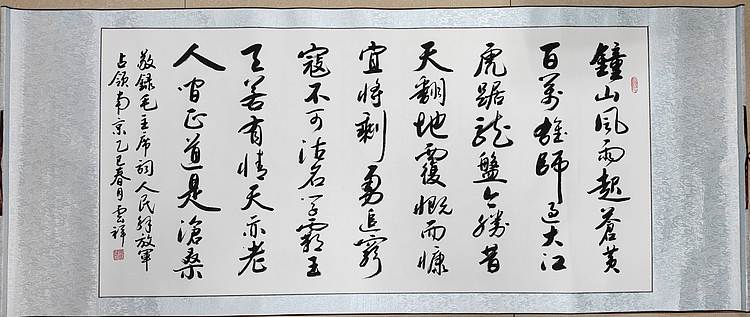 鐘山風雨起蒼黃
百萬雄師過大江
虎踞龍盤今勝昔
天翻地覆慨而慷
宜將剩勇追窮
寇不可沽名學霸王
天若有情天亦老
人間正道是滄桑
敬録毛主席詞人民解放軍
占領南京乙巳春月雲祥